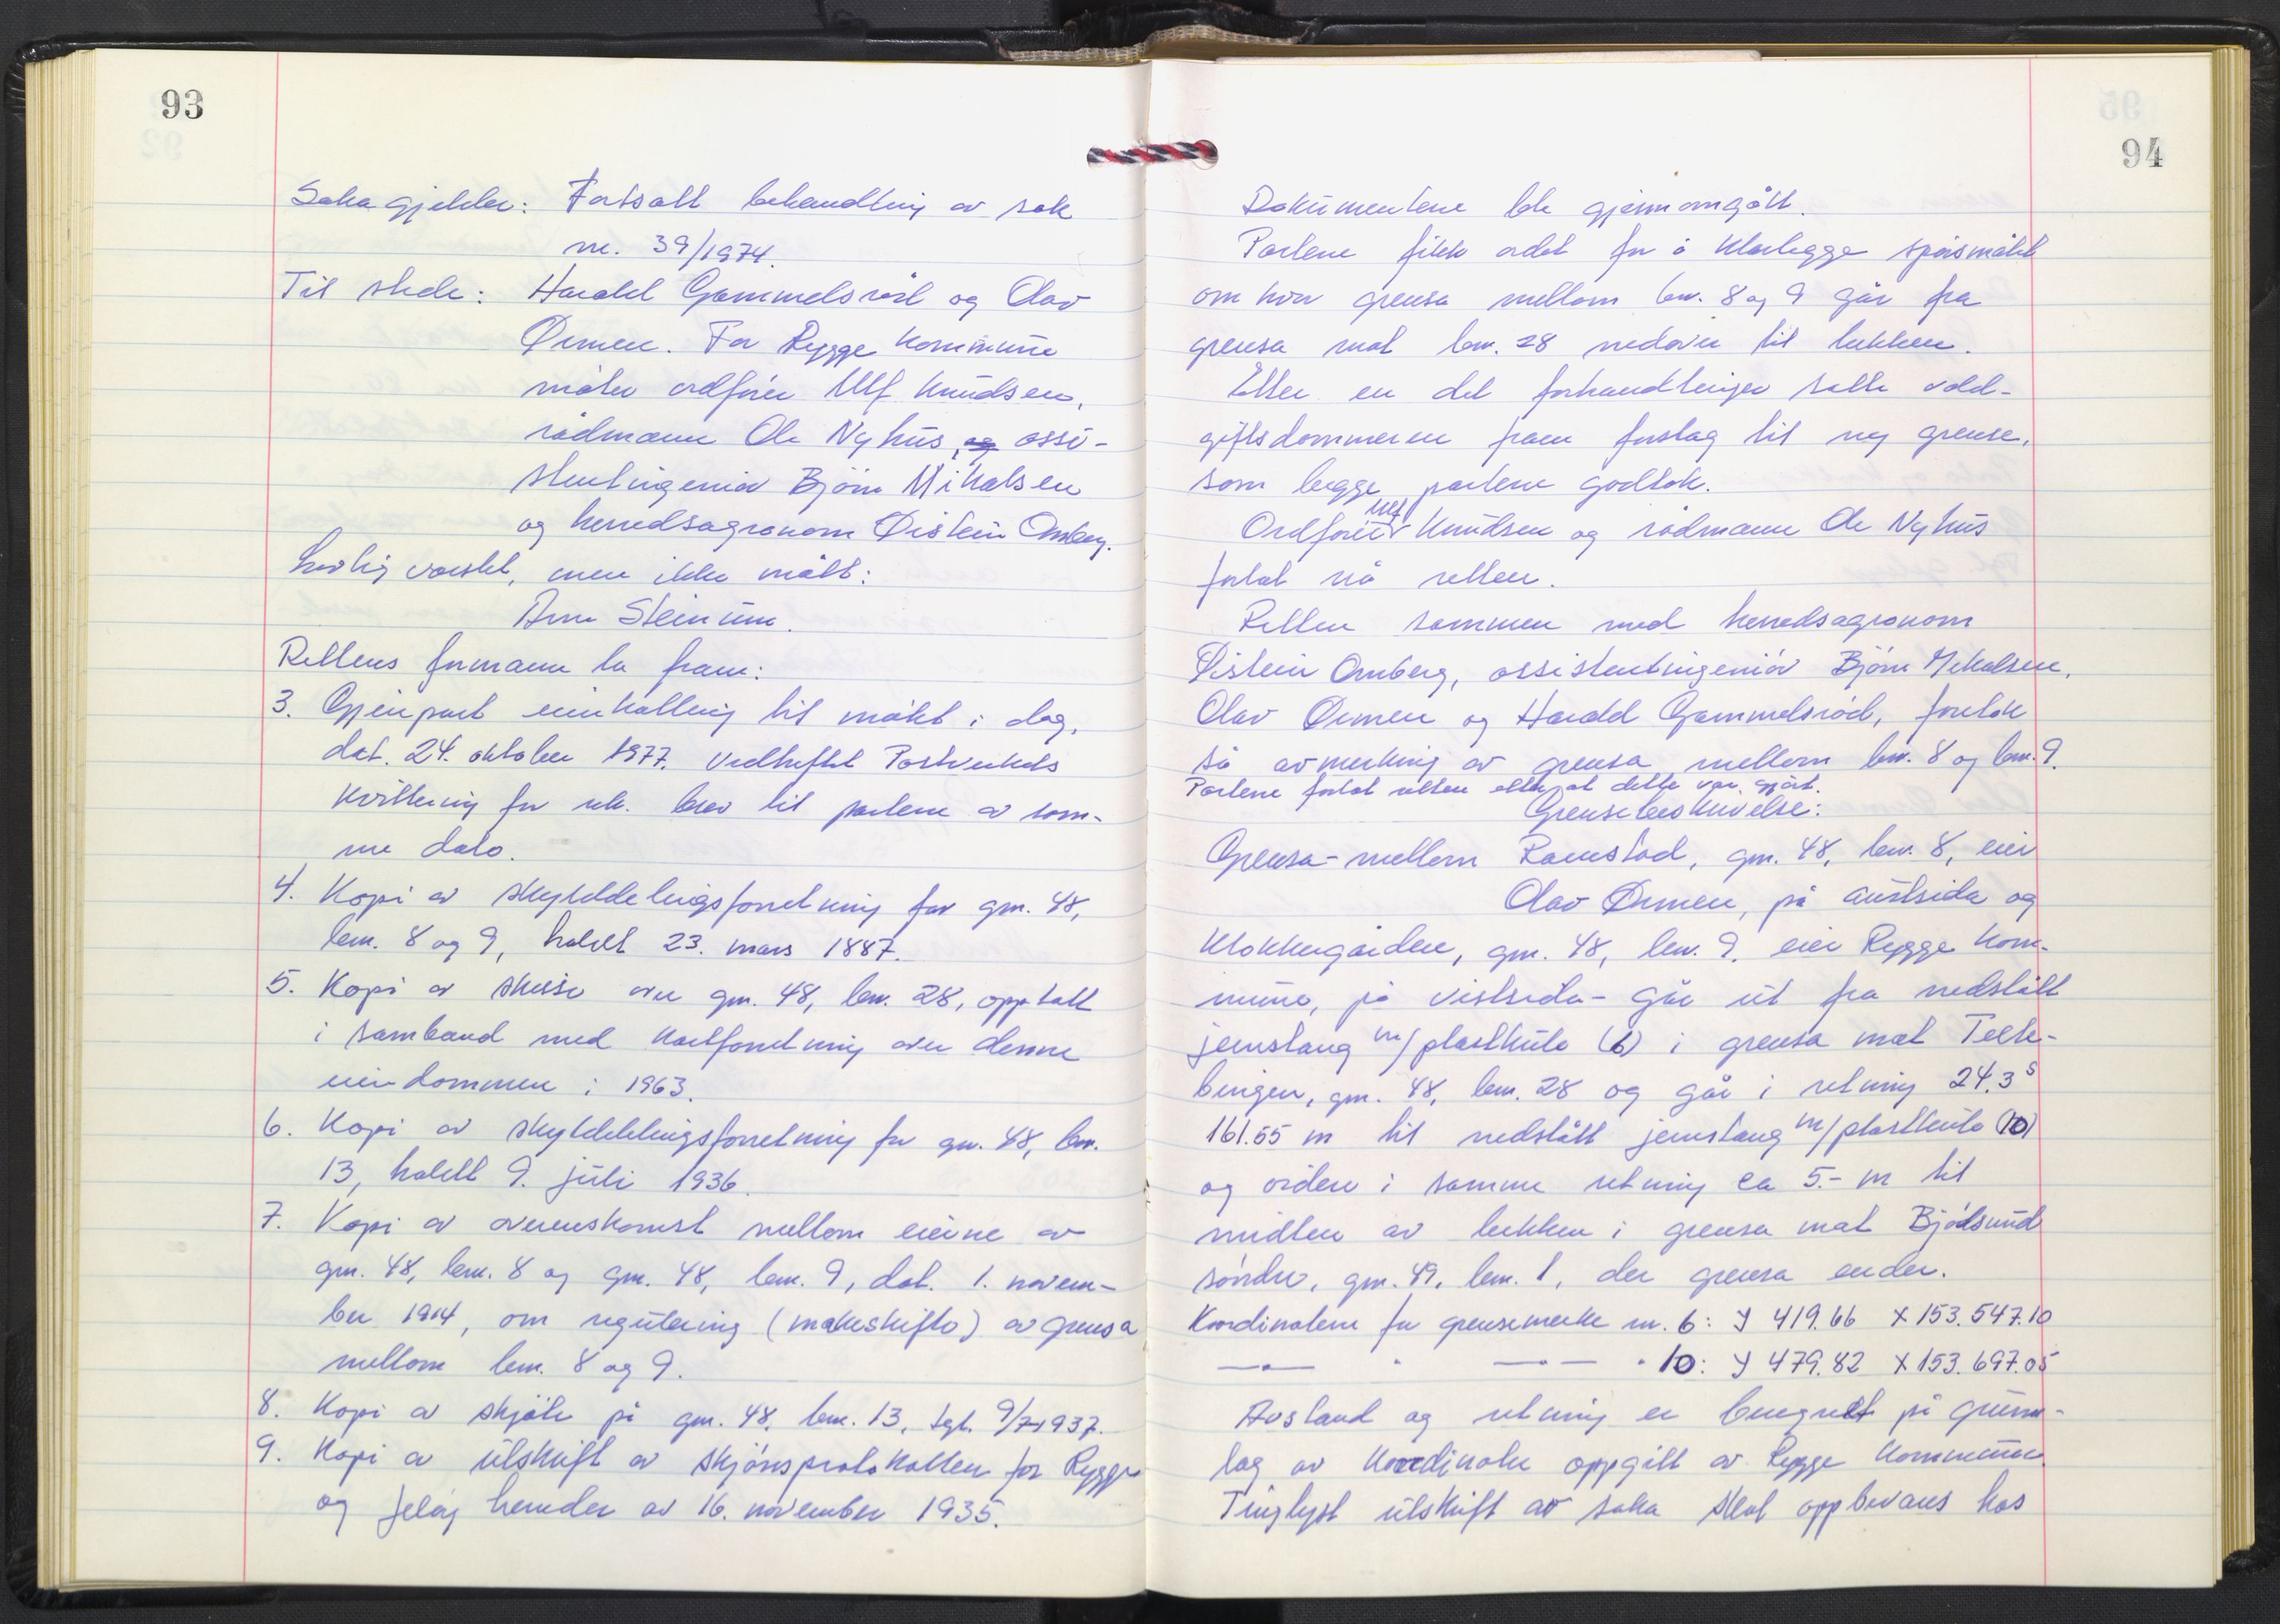 93
Saka gjelder: Fortsatt behandling av sak
nr. 39/1974.
Til stede: Harald Gammelsröd og Olav
Ørmen. For Rygge kommune
möter ordförer Ulf Knudsen,
rådmann Ole Nyhus, og assi-
stentingeniör Björn Mikalsen
og herredsagronom Øistein Omberg.
Lovlig varslet, men ikke mött:
Arne Steinum.
Rettens formann la fram:
3. Gjenpart innkalling til mötet i dag,
dat. 24. oktober 1977. Vedheftet Postverkets
kvittering for rek. brev til partene av sam-
me dato.
4. Kopi av skylddelingsforretning for gnr. 48,
bnr. 8 og 9, holdt 23. mars 1887.
5. Kopi av skisse over gnr. 48, bnr. 28, opptatt
i samband med kartforretning over denne
eiendommen i 1963.
6. Kopi av skylddelingsforretning for gnr. 48, bnr.
13, holdt 9. juli 1936.
7. Kopi av overenskomst mellom eierne av
gnr. 48, bnr. 8 og gnr. 48, bnr. 9, dat. 1. novem-
ber 1914, om regulering (makeskifte) av grensa
mellom bnr. 8 og 9.
8. Kopi av skjöte på gnr. 48, bnr. 13, tgl. 9/7-1937.
9. Kopi av utskrift av skjönsprotokollen for Rygge
og Jelöy herreder av 16. november 1935.
94
Dokumentene ble gjennomgått.
Partene fikk ordet for å klarlegge spörsmålet
om hvor grensa mellom bnr. 8 og 9 går fra
grensa mot bnr. 28 nedover til bekken.
Etter en del forhandlinger satte vold-
giftsdommeren fram forslag til ny grense,
som begge partene godtok.
Ordförer Ulf Knudsen og rådmann Ole Nyhus
forlot nå retten.
Retten sammen med herredsagronom
Øistein Omberg, assistentingeniör Björn Mikalsen,
Olav Ørmen og Harald Gammelsröd, foretok
så avmerking av grensa mellom bnr. 8 og bnr. 9.
Partene forlot retten etter at dette var gjort.
Grensebeskrivelse:
Grensa - mellom Ramstad, gnr. 48, bnr. 8, eier
Olav Ørmen, på austsida og
Klokkergården, gnr. 48, bnr. 9, eier Rygge kom-
mune, på vestsida - går ut fra nedslått
jernstang m/plastkule (6) i grensa mot Teek-
bingen, gnr. 48, bnr. 28 og går i retning 24.3 g
161.55 m til nedslått jernstang m/plastkule (10)
og videre i samme retning ca 5.- m til
midten av bekken i grensa mot Bjödsund
söndre, gnr. 49, bnr. 1, der grensa ender.
Koordinatene for grensemerke nr. 6: Y 419.66 X 153.547.10
—"— " —"— " 10: Y 479.82 X 153.697.05
Avstand og retning er beregnet på grunn-
lag av koordinater oppgitt av Rygge kommune.
Tinglyst utskrift av saka skal oppbevares hos